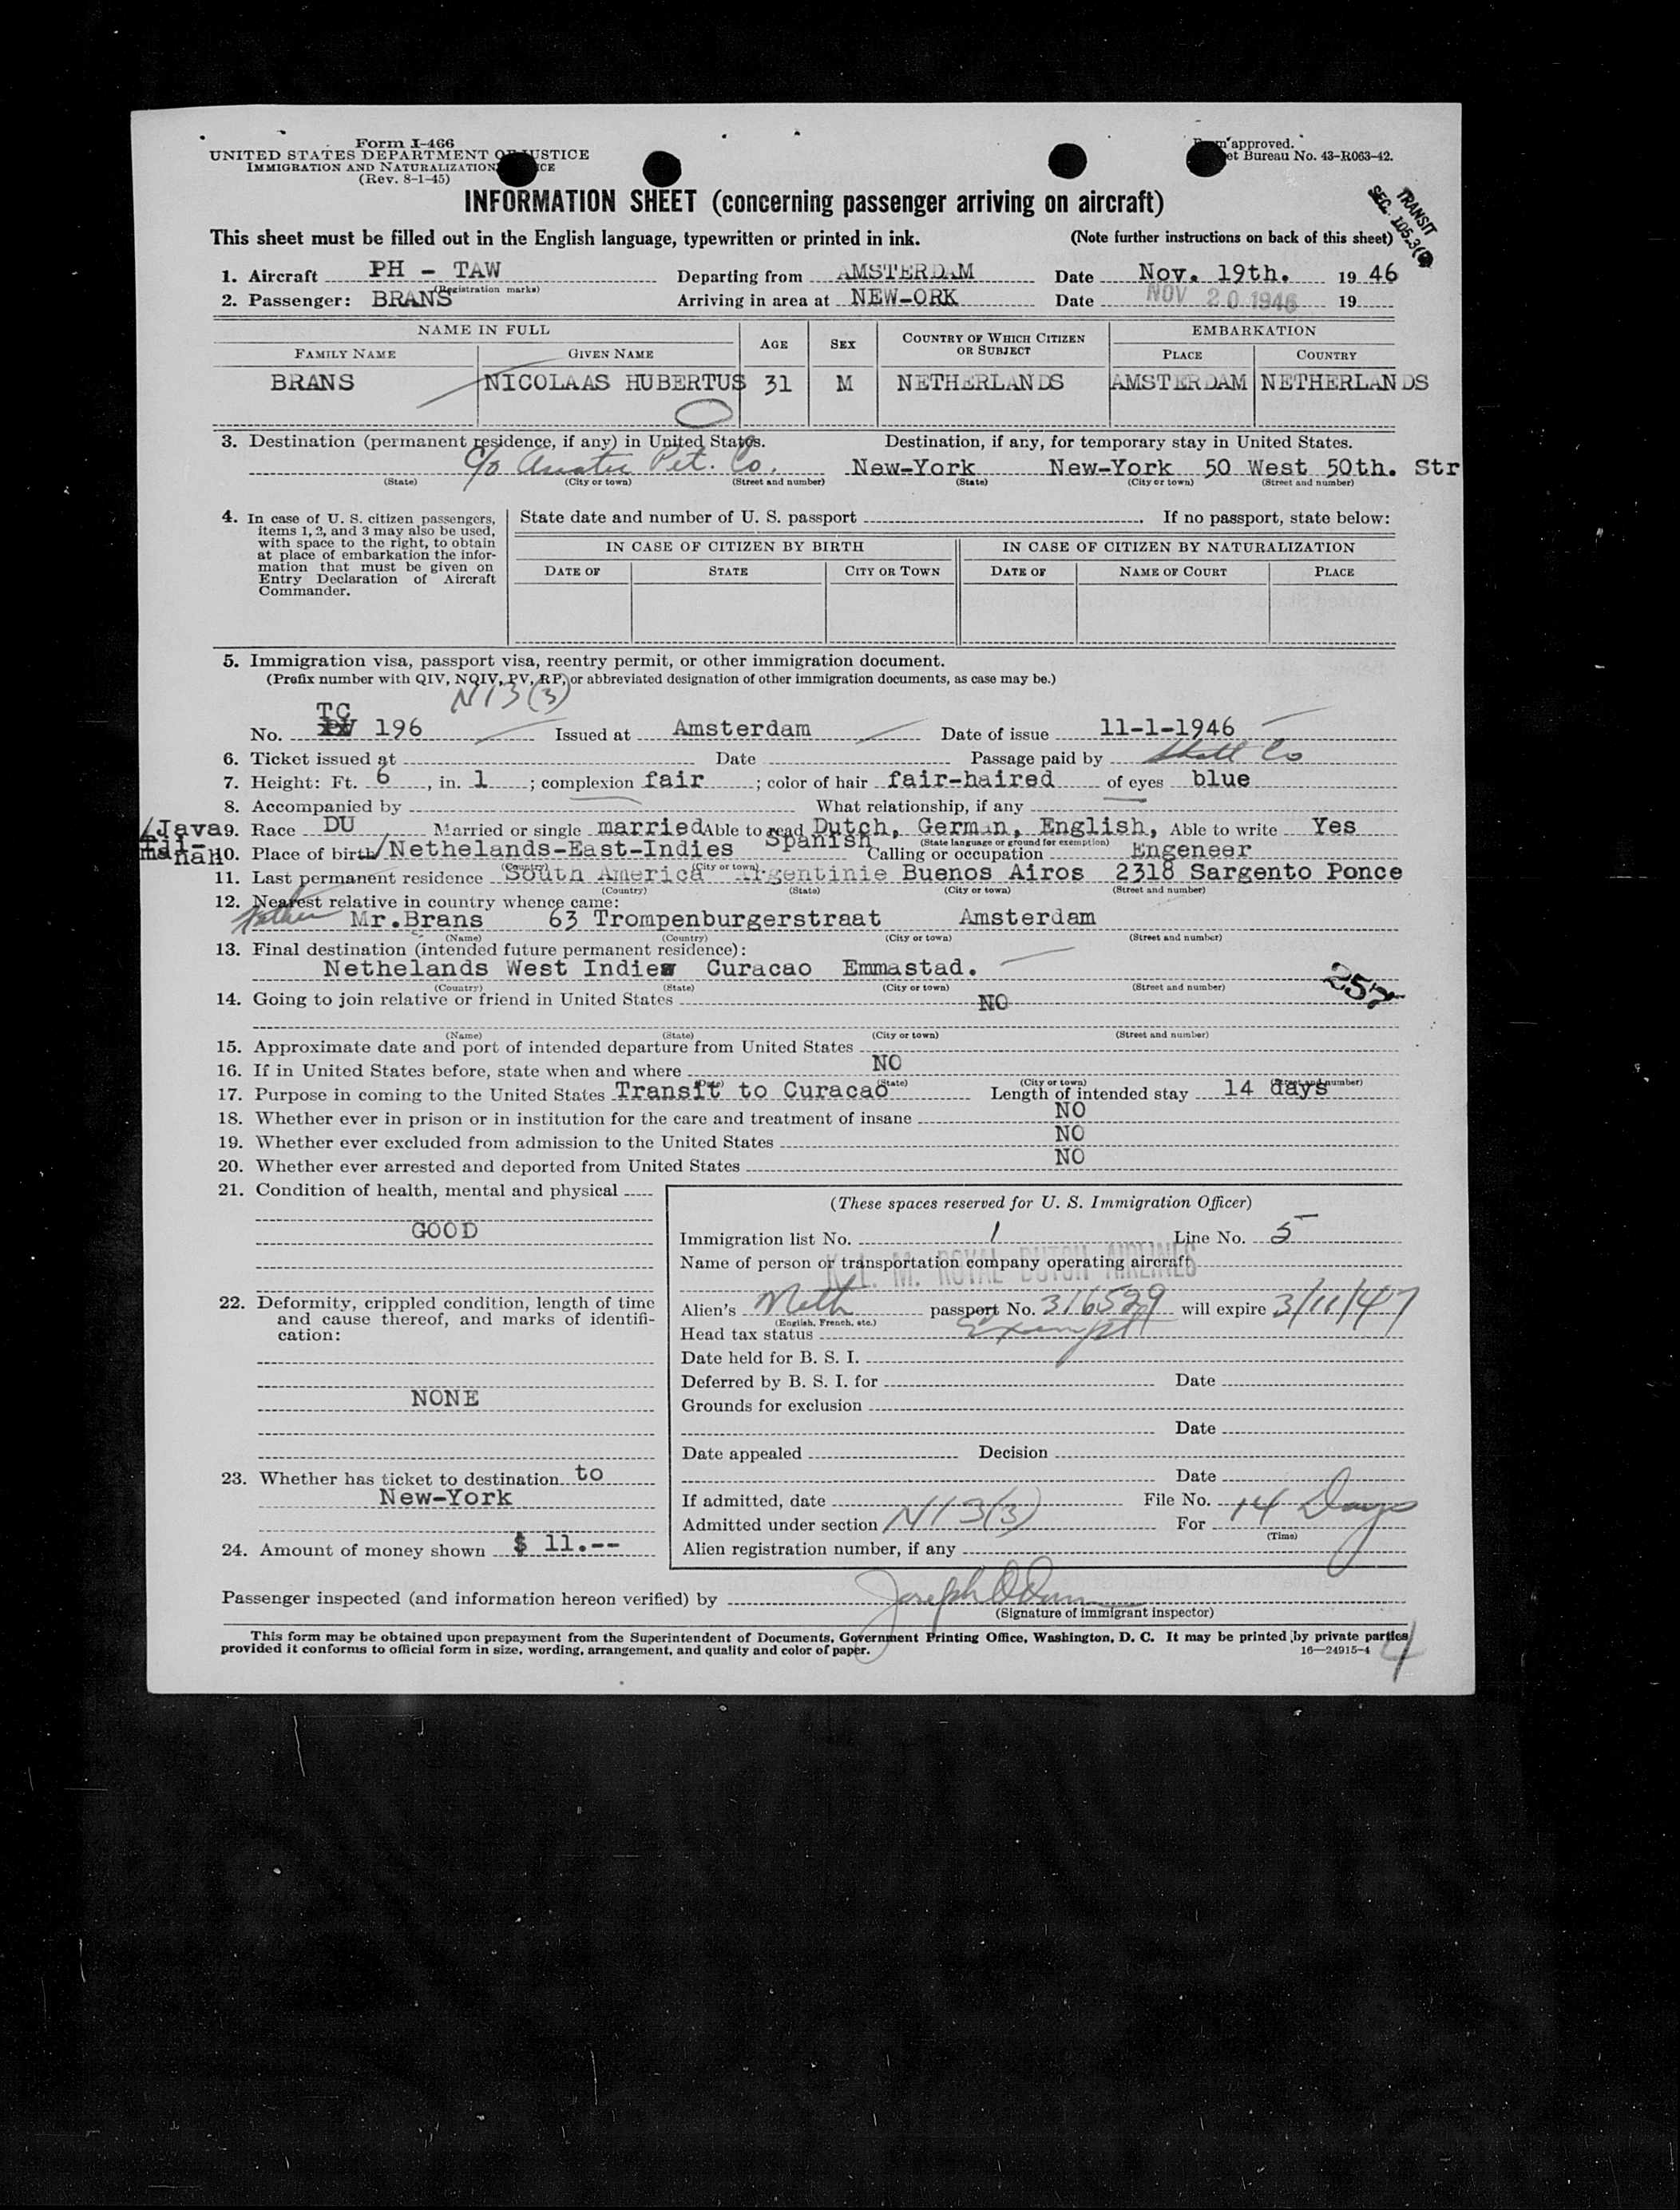 Form I-466
UNITED STATES DEPARTMENT OF JUSTICE
IMMIGRATION AND NATURALIZATION
(Rev. 8-1-45)
approved.
et Bureau No. 43-R063-42.
INFORMATION SHEET (concerning passenger arriving on aircraft)
TRANSIT
SEC. 105.3
This sheet must be filled out in the English language, typewritten or printed in ink. (Note further instructions on back of this sheet)
1. Aircraft PH - TAW Departing from AMSTERDAM Date Nov. 19th. 19 46
(Registration marks)
2. Passenger: BRANS Arriving in area at NEW-ORK Date NOV 20 1946 19
NAME IN FULL AGE SEX COUNTRY OF WHICH CITIZEN OR SUBJECT EMBARKATION
FAMILY NAME GIVEN NAME PLACE COUNTRY
BRANS NICOLAAS HUBERTUS 31 M NETHERLANDS AMSTERDAM NETHERLANDS
3. Destination (permanent residence, if any) in United States. Destination, if any, for temporary stay in United States.
c/o Asiatic Pet. Co. New-York New-York 50 West 50th. Str
(State) (City or town) (Street and number) (State) (City or town) (Street and number)
4. In case of U. S. citizen passengers, items 1, 2, and 3 may also be used, with space to the right, to obtain at place of embarkation the information that must be given on Entry Declaration of Aircraft Commander.
State date and number of U. S. passport If no passport, state below:
IN CASE OF CITIZEN BY BIRTH IN CASE OF CITIZEN BY NATURALIZATION
DATE OF STATE CITY OR TOWN DATE OF NAME OF COURT PLACE
5. Immigration visa, passport visa, reentry permit, or other immigration document.
(Prefix number with QIV, NQIV, PV, RP, or abbreviated designation of other immigration documents, as case may be.)
N13(3)
TC
No. PV 196 Issued at Amsterdam Date of issue 11-1-1946
6. Ticket issued at Date Passage paid by Shell Co
7. Height: Ft. 6, in. 1; complexion fair; color of hair fair-haired of eyes blue
8. Accompanied by What relationship, if any
/Java 9. Race DU Married or single married Able to read Dutch, German, English, Able to write Yes
Spanish (State language or ground for exemption)
10. Place of birth / Nethelands-East-Indies Calling or occupation Engeneer
(Country) (City or town)
11. Last permanent residence South America Argentinie Buenos Airos 2318 Sargento Ponce
(Country) (State) (City or town) (Street and number)
12. Nearest relative in country whence came:
Father Mr.Brans 63 Trompenburgerstraat Amsterdam
(Name) (Country) (City or town) (Street and number)
13. Final destination (intended future permanent residence):
Nethelands West Indies Curacao Emmastad.
(Country) (State) (City or town) (Street and number)
257
14. Going to join relative or friend in United States NO
(Name) (State) (City or town) (Street and number)
15. Approximate date and port of intended departure from United States
16. If in United States before, state when and where NO
(Date) (State) (City or town) (Street and number)
17. Purpose in coming to the United States Transit to Curacao Length of intended stay 14 days
18. Whether ever in prison or in institution for the care and treatment of insane NO
19. Whether ever excluded from admission to the United States NO
20. Whether ever arrested and deported from United States NO
21. Condition of health, mental and physical
GOOD
22. Deformity, crippled condition, length of time and cause thereof, and marks of identification:
NONE
23. Whether has ticket to destination to
New-York
24. Amount of money shown $ 11.--
(These spaces reserved for U. S. Immigration Officer)
Immigration list No. 1 Line No. 5
Name of person or transportation company operating aircraft
K. L. M. ROYAL DUTCH AIRLINES
Alien's Neth passport No. 316529 will expire 3/11/47
(English, French, etc.)
Head tax status Exempt
Date held for B. S. I.
Deferred by B. S. I. for Date
Grounds for exclusion
Date
Date appealed Decision
Date
If admitted, date File No.
Admitted under section N13(3) For 14 Days
(Time)
Alien registration number, if any
Passenger inspected (and information hereon verified) by Joseph
(Signature of immigrant inspector)
This form may be obtained upon prepayment from the Superintendent of Documents, Government Printing Office, Washington, D. C. It may be printed by private parties
provided it conforms to official form in size, wording, arrangement, and quality and color of paper. 16—24915-4
4